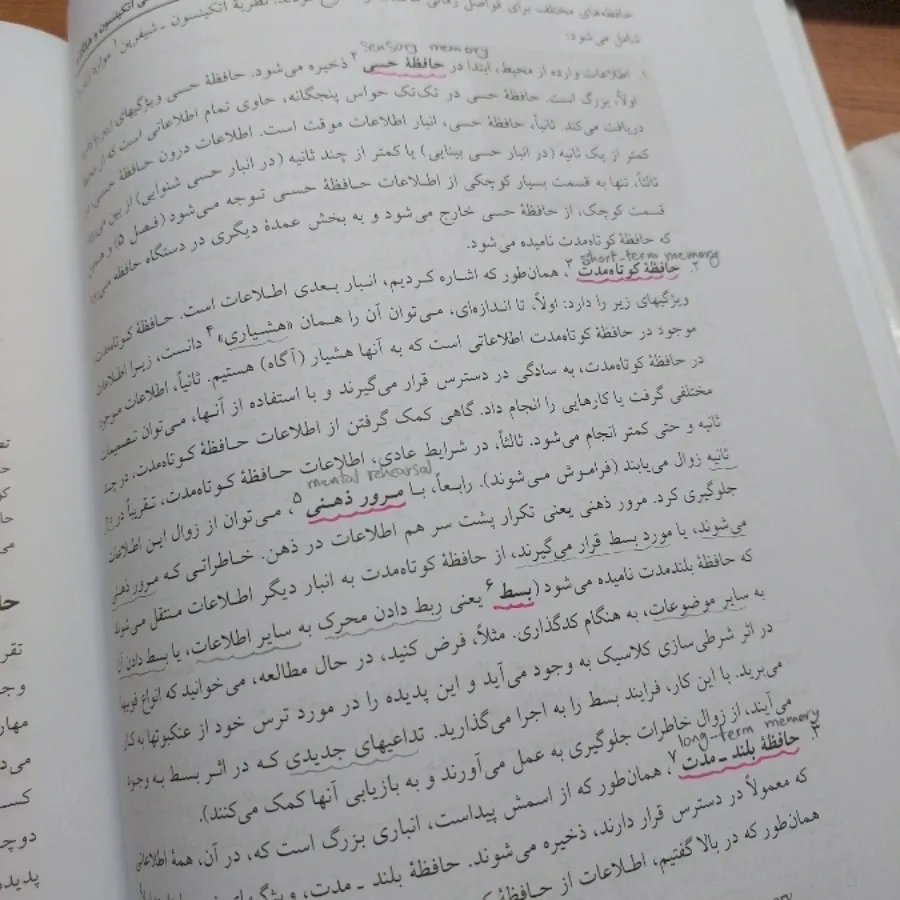 حافظه‌های مختلف برای فواصل زمانی
نظریهٔ اتکینسون ـ شیفرین ۱ موارد
شامل می‌شود:
sensory memory
۱. اطلاعات وارده از محیط، ابتدا در حافظهٔ حسی ۲ ذخیره می‌شود. حافظهٔ حسی ویژگیهای زیر را دارد:
اولاً، بزرگ است. حافظهٔ حسی در تک‌تک حواس پنجگانه، حاوی تمام اطلاعاتی است که از محیط
دریافت می‌کند. ثانیاً، حافظهٔ حسی، انبار اطلاعات موقت است. اطلاعات درون حافظهٔ حسی، در
کمتر از یک ثانیه (در انبار حسی بینایی) یا کمتر از چند ثانیه (در انبار حسی شنوایی) از بین می‌رود.
ثالثاً، تنها به قسمت بسیار کوچکی از اطلاعات حافظهٔ حسی توجه می‌شود (فصل ۵) و همین
قسمت کوچک، از حافظهٔ حسی خارج می‌شود و به بخش عمدهٔ دیگری در دستگاه حافظه می‌رود
که حافظهٔ کوتاه‌مدت نامیده می‌شود.
short-term memory
۲. حافظهٔ کوتاه‌مدت ۳، همان‌طور که اشاره کردیم، انبار بعدی اطلاعات است. حافظهٔ کوتاه‌مدت
ویژگیهای زیر را دارد: اولاً، تا اندازه‌ای، می‌توان آن را همان «هشیاری» ۴ دانست، زیرا اطلاعات
موجود در حافظهٔ کوتاه‌مدت اطلاعاتی است که به آنها هشیار (آگاه) هستیم. ثانیاً، اطلاعات موجود
در حافظهٔ کوتاه‌مدت، به سادگی در دسترس قرار می‌گیرند و با استفاده از آنها، می‌توان تصمیمات
مختلفی گرفت یا کارهایی را انجام داد. گاهی کمک گرفتن از اطلاعات حافظهٔ کوتاه‌مدت، در چند
ثانیه و حتی کمتر انجام می‌شود. ثالثاً، در شرایط عادی، اطلاعات حافظهٔ کوتاه‌مدت، تقریباً در
mental rehearsal
ثانیه زوال می‌یابند (فراموش می‌شوند). رابعاً، با مرور ذهنی ۵، می‌توان از زوال این اطلاعات
جلوگیری کرد. مرور ذهنی یعنی تکرار پشت سر هم اطلاعات در ذهن. خاطراتی که مرور ذهنی
می‌شوند، یا مورد بسط قرار می‌گیرند، از حافظهٔ کوتاه‌مدت به انبار دیگر اطلاعات منتقل می‌شوند
که حافظهٔ بلندمدت نامیده می‌شود (بسط ۶ یعنی ربط دادن محرک به سایر اطلاعات، یا بسط دادن آن
به سایر موضوعات، به هنگام کدگذاری. مثلاً، فرض کنید، در حال مطالعه، می‌خوانید که انواع فوبیها
در اثر شرطی‌سازی کلاسیک به وجود می‌آید و این پدیده را در مورد ترس خود از عنکبوتها به کار
می‌برید. با این کار، فرایند بسط را به اجرا می‌گذارید. تداعیهای جدیدی که در اثر بسط به وجود
می‌آیند، از زوال خاطرات جلوگیری به عمل می‌آورند و به بازیابی آنها کمک می‌کنند).
long-term memory
۳. حافظهٔ بلند ـ مدت ۷، همان‌طور که از اسمش پیداست، انباری بزرگ است که، در آن، همهٔ اطلاعاتی
که معمولاً در دسترس قرار دارند، ذخیره می‌شوند. حافظهٔ بلند ـ مدت،
همان‌طور که در بالا گفتیم، اطلاعات از حافظهٔ